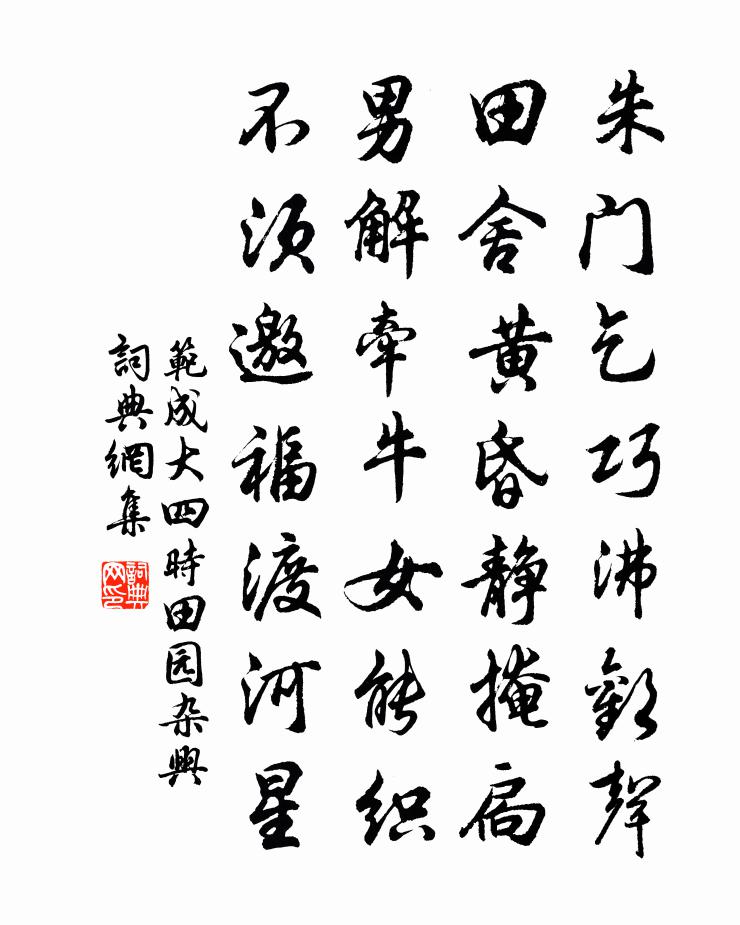 朱门乞巧沸歡聲
田舍黄昏静掩扃
男解牵牛女能织
不须邀福渡河星
範成大四時田园杂興
詞典網集
詞典网印